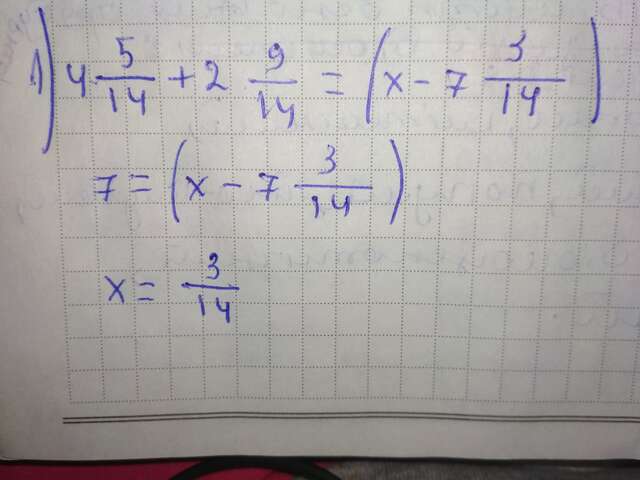 1) 4 5/14 + 2 9/14 = (x - 7 3/14)
7 = (x - 7 3/14)
x = 3/14